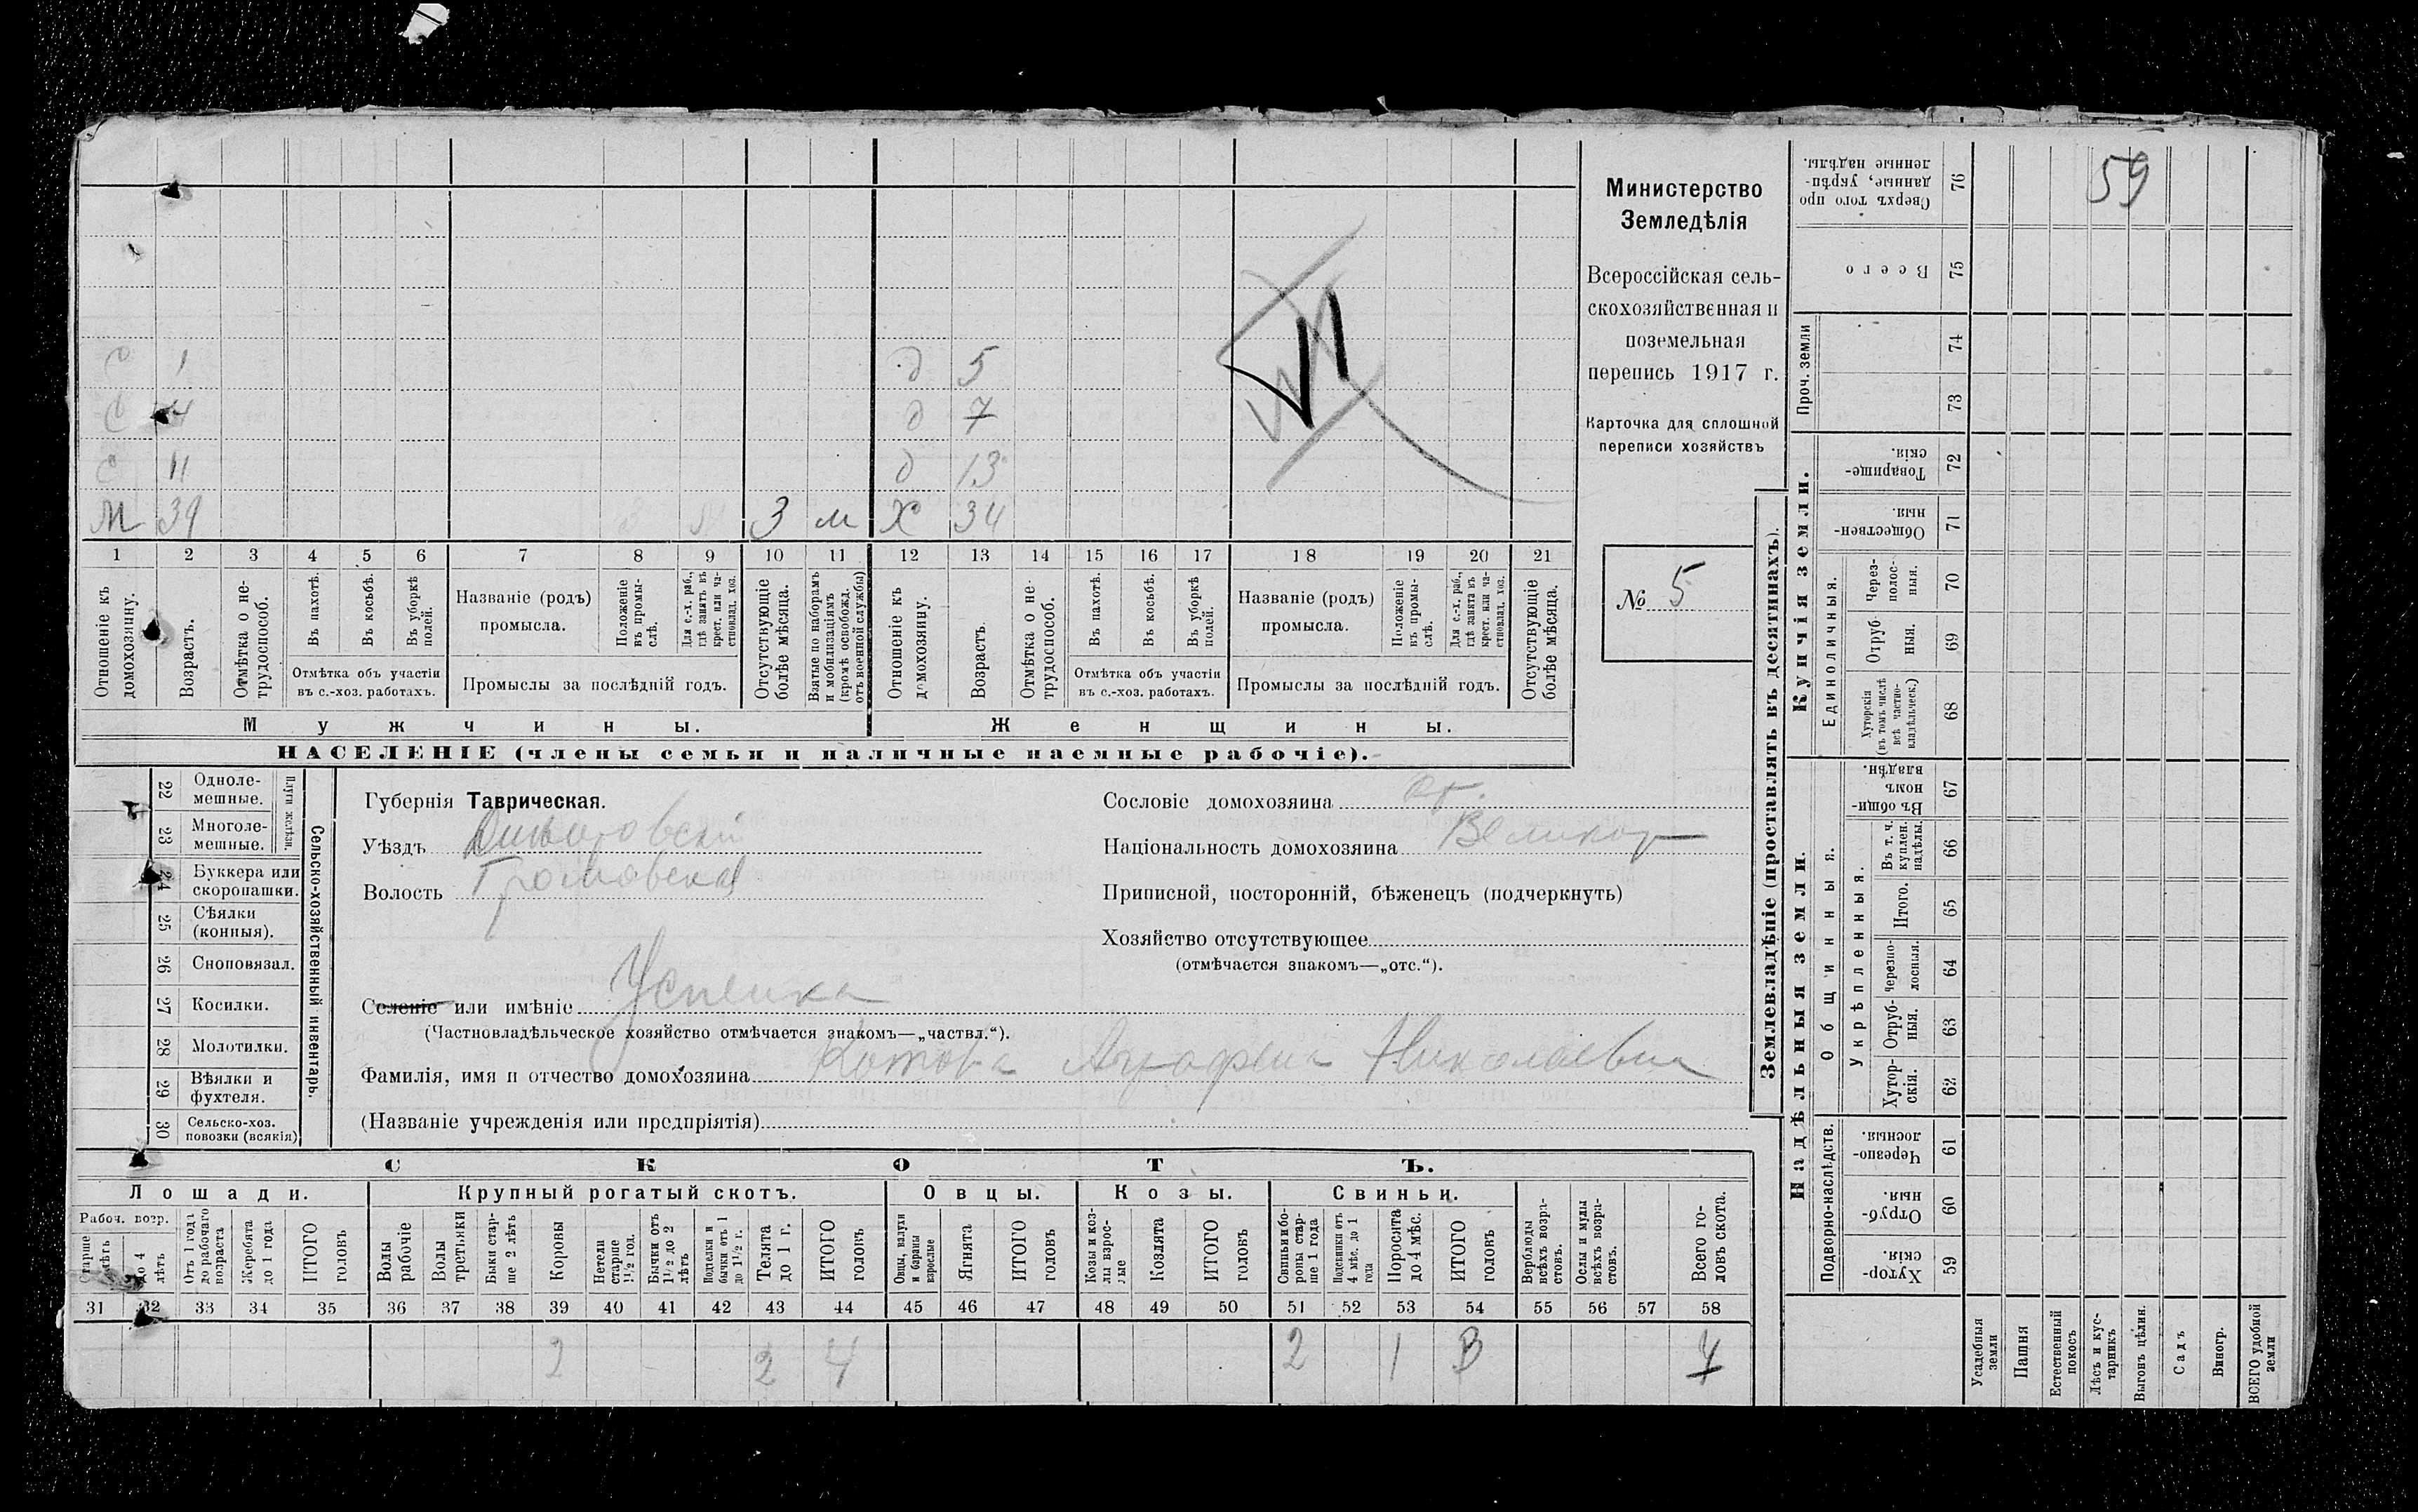 59
С 1 д 5
С 4 д 7
С 11 д 13
М 39 3 м Х 34
1 2 3 4 5 6 7 8 9 10 11 12 13 14 15 16 17 18 19 20 21
Отношеніе къ домохозяину.
Возрастъ.
Отмѣтка о нетрудоспособ.
Въ пахотѣ.
Въ косьбѣ.
Въ уборкѣ полей.
Отмѣтка объ участіи
въ с.-хоз. работахъ.
Названіе (родъ)
промысла.
Положеніе въ промыслѣ.
Для с.-х. раб., гдѣ занятъ въ крест. или частновлад. хоз.
Промыслы за послѣдній годъ.
Отсутствующіе болѣе мѣсяца.
Взятые по наборамъ и мобилизаціямъ (кромѣ освобожд. отъ военной службы)
Отношеніе къ домохозяину.
Возрастъ.
Отмѣтка о нетрудоспособ.
Въ пахотѣ.
Въ косьбѣ.
Въ уборкѣ полей.
Отмѣтка объ участіи
въ с.-хоз. работахъ.
Названіе (родъ)
промысла.
Положеніе въ промыслѣ.
Для с.-х. раб., гдѣ занята въ крест. или частновлад. хоз.
Промыслы за послѣдній годъ.
Отсутствующіе болѣе мѣсяца.
Мужчины.
Женщины.
НАСЕЛЕНІЕ (члены семьи и наличные наемные рабочіе).
Министерство
Земледѣлія
Всероссійская сель-
скохозяйственная и
поземельная
перепись 1917 г.
Карточка для сплошной
переписи хозяйствъ
№ 5
22 Одноле-
мешные.
23 Многоле-
мешные.
Плуги желѣзн.
24 Буккера или
скоропашки.
25 Сѣялки
(конныя).
26 Сноповязал.
27 Косилки.
28 Молотилки.
29 Вѣялки и
фухтеля.
30 Сельско-хоз.
повозки (всякія)
Сельско-хозяйственный инвентарь.
Губернія Таврическая.
Уѣздъ
Волость Громовская
Селеніе или имѣніе Успенка
(Частновладѣльческое хозяйство отмѣчается знакомъ—„частвл.“).
Фамилія, имя и отчество домохозяина Котова Аграфена Николаевна
(Названіе учрежденія или предпріятія)
Сословіе домохозяина
Національность домохозяина Великор
Приписной, посторонній, бѣженецъ (подчеркнуть)
Хозяйство отсутствующее
(отмѣчается знакомъ—„отс.“).
СКОТЪ.
Лошади.
Рабоч. возр.
Старше лѣтъ
до 4 лѣтъ
Отъ 1 года до рабочаго возраста
Жеребята до 1 года
ИТОГО головъ
Крупный рогатый скотъ.
Волы рабочіе
Волы третьяки
Быки старше 2 лѣтъ
Коровы
Нетели старше 1½ год.
Бычки отъ 1½ до 2 лѣтъ
Подтелки и бычки отъ 1 до 1½ г.
Телята до 1 г.
ИТОГО головъ
Овцы.
Овцы, валухи и бараны взрослые
Ягнята
ИТОГО головъ
Козы.
Козы и козлы взрослые
Козлята
ИТОГО головъ
Свиньи.
Свиньи и боровы старше 1 года
Подсвинки отъ 4 мѣс. до 1 года
Поросята до 4 мѣс.
ИТОГО головъ
Верблюды всѣхъ возрастовъ.
Ослы и мулы всѣхъ возрастовъ.
Всего головъ скота.
31 32 33 34 35 36 37 38 39 40 41 42 43 44 45 46 47 48 49 50 51 52 53 54 55 56 57 58
2 2 4 2 1 3 7
Землевладѣніе (проставлять въ десятинахъ).
Купчія земли.
Надѣльныя земли.
Сверхъ того проданные, укрѣпленные надѣлы. 76
Всего 75
Проч. земли
74
73
Товарищескія. 72
Общественныя. 71
Единоличныя.
Черезполосныя. 70
Отрубныя. 69
Хуторскія (въ томъ числѣ всѣ частновладѣльческ.) 68
Въ общиномъ владѣн. 67
Общинныя.
Укрѣпленныя.
Въ т. ч. куплен. надѣлы. 66
Итого. 65
Черезполосныя. 64
Отрубныя. 63
Хуторскія. 62
Подворно-наслѣдств.
Черезполосныя. 61
Отрубныя. 60
Хуторскія. 59
Усадебныя земли
Пашня
Естественный покосъ
Лѣсъ и кустарникъ
Выгонъ цѣлин.
Садъ
Виногр.
ВСЕГО удобной земли